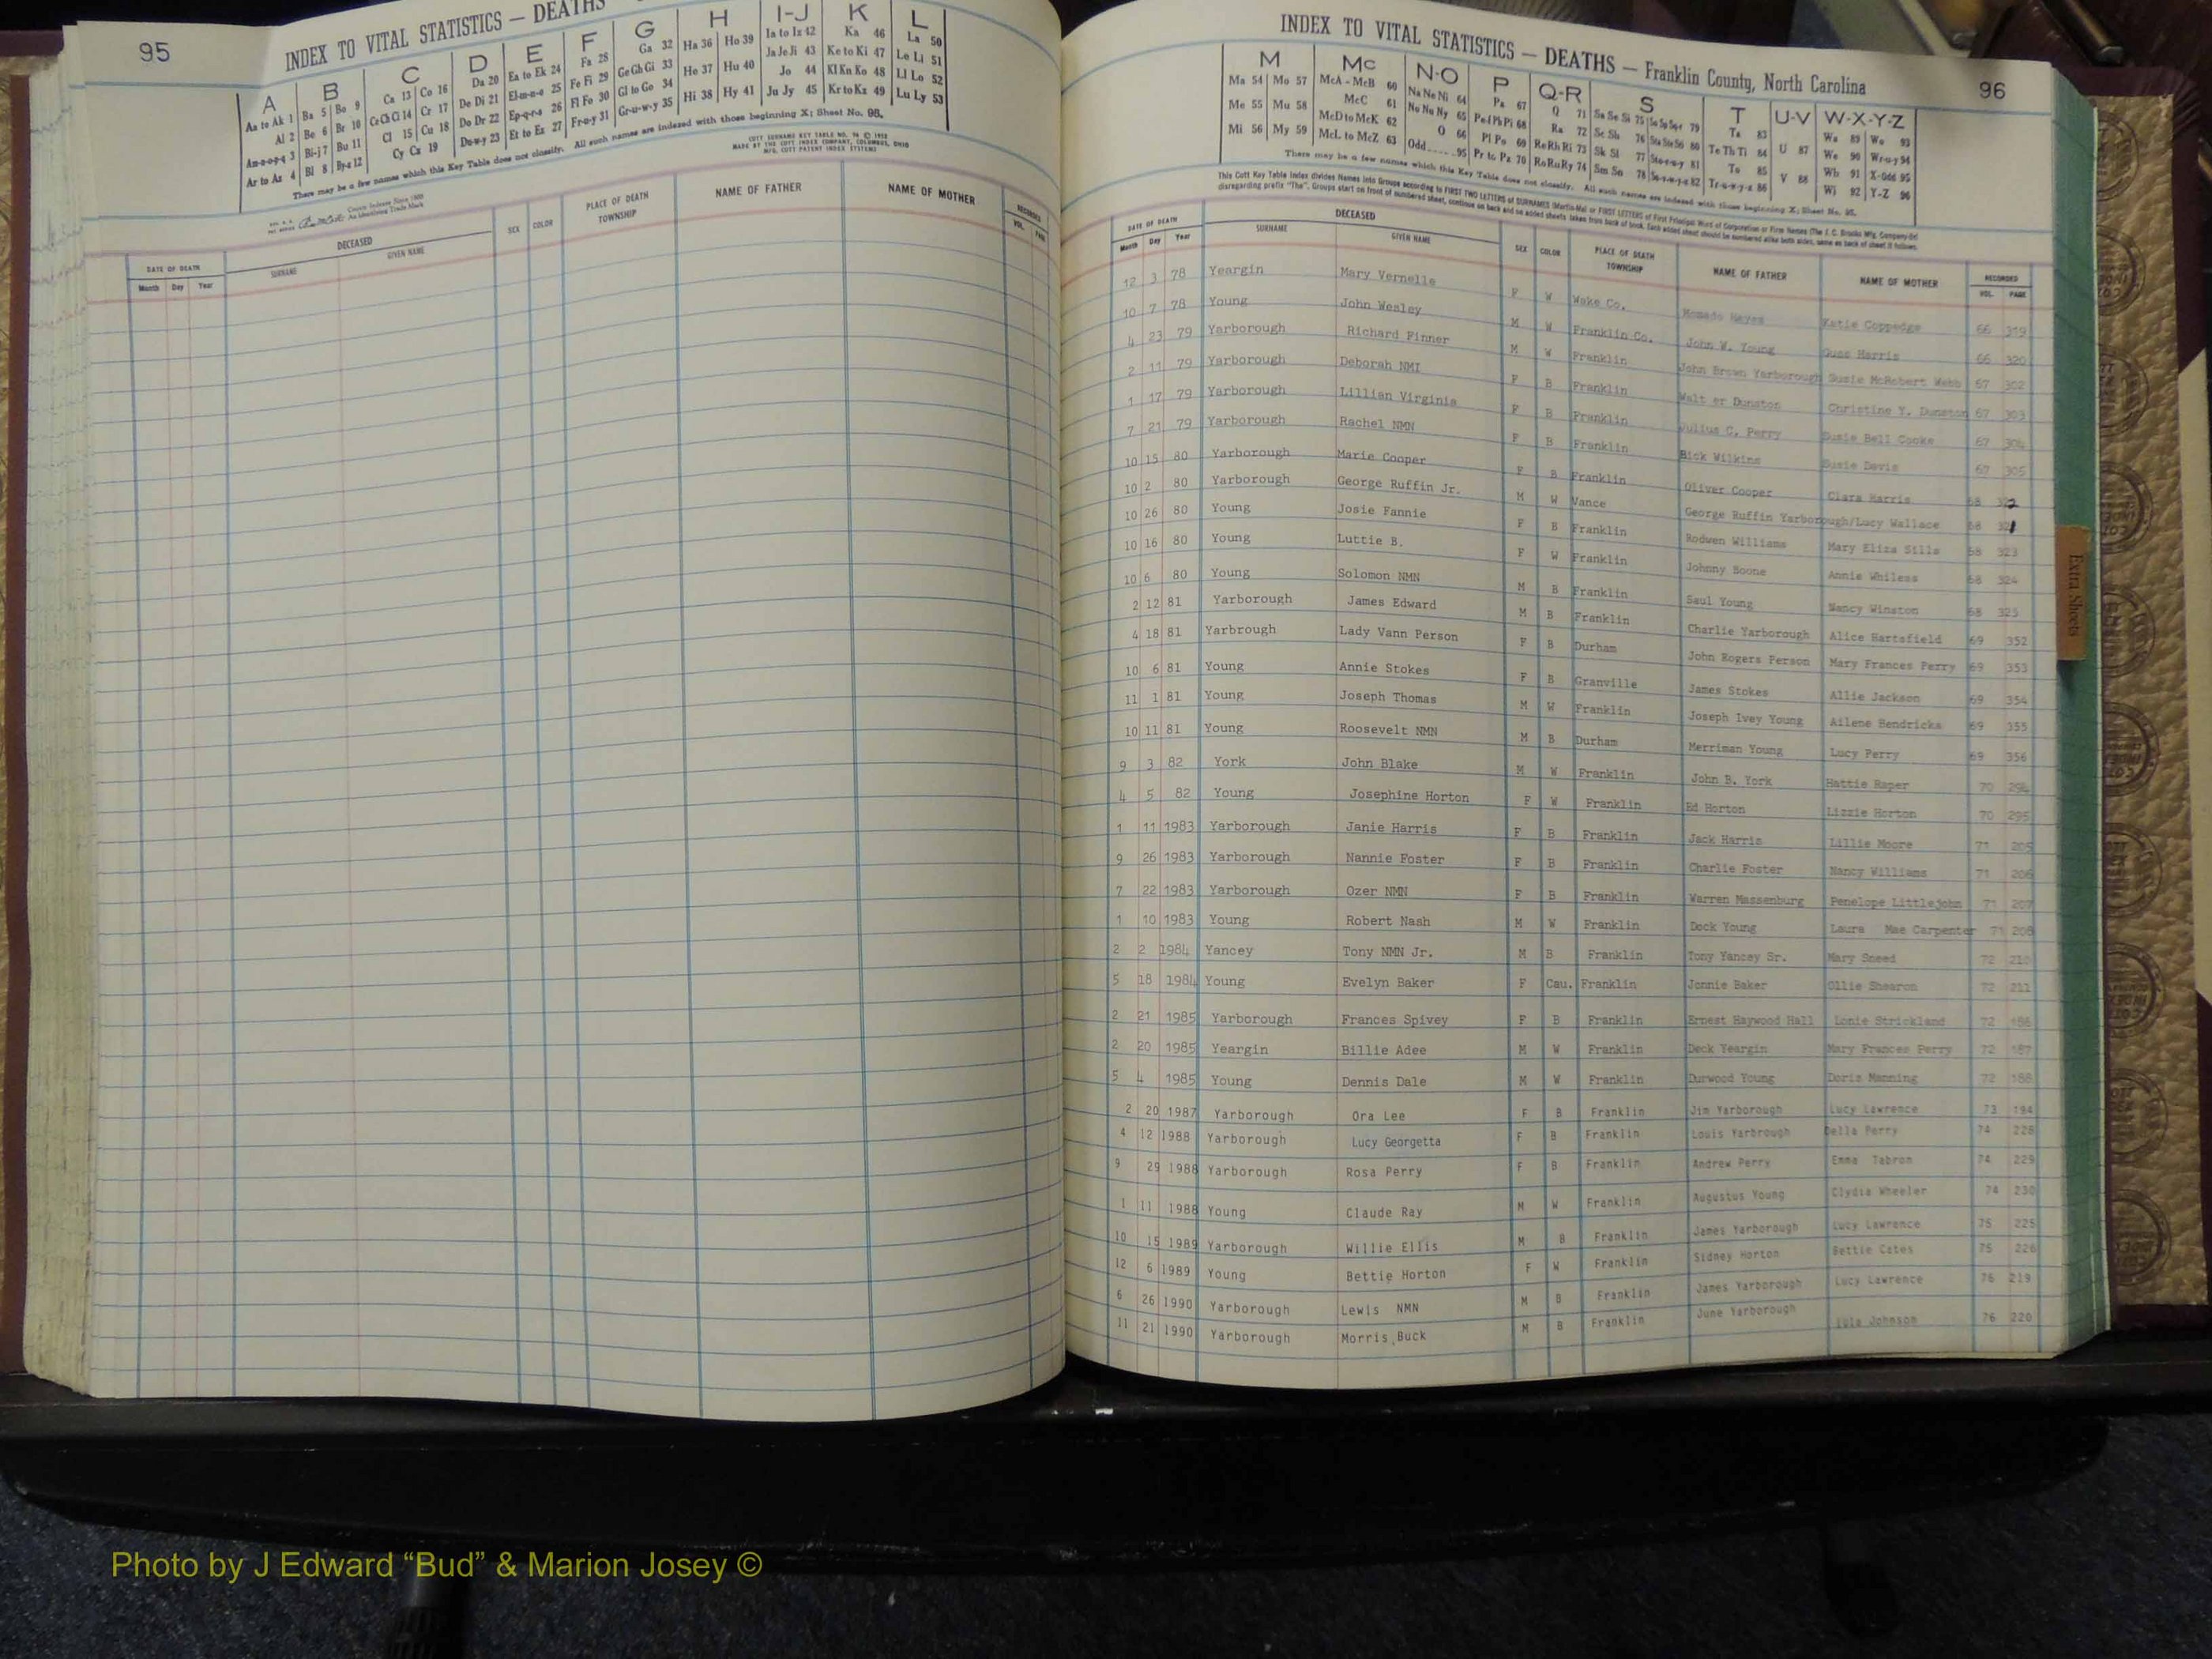 95
INDEX TO VITAL STATISTICS — DEATHS
A B C D E F G H I-J K L
Aa to Ak 1 Ba 5 Bo 9 Ca 13 Co 16 Da 20 Ea to Ek 24 Fa 28 Ga 32 Ha 36 Ho 39 Ia to Iz 42 Ka 46 La 50
Al 2 Be 6 Br 10 Ce Ch Ci 14 Cr 17 De Di 21 El-m-n-o 25 Fe Fi 29 Ge Gh Gi 33 He 37 Hu 40 Ja Je Ji 43 Ke to Ki 47 Le Li 51
Am-n-o-p-q 3 Bi-j 7 Bu 11 Cl 15 Cu 18 Do Dr 22 Ep-q-r-s 26 Fl Fo 30 Gl to Go 34 Hi 38 Hy 41 Jo 44 Kl Kn Ko 48 Ll Lo 52
Ar to Az 4 Bl 8 By-z 12 Cy Cz 19 Du-w-y 23 Et to Ez 27 Fr-u-y 31 Gr-u-w-y 35 Ju Jy 45 Kr to Kz 49 Lu Ly 53
There may be a few names which this Key Table does not classify. All such names are indexed with those beginning X; Sheet No. 95.
DATE OF DEATH DECEASED SEX COLOR PLACE OF DEATH TOWNSHIP NAME OF FATHER NAME OF MOTHER RECORDED
Month Day Year SURNAME GIVEN NAME VOL. PAGE
INDEX TO VITAL STATISTICS — DEATHS — Franklin County, North Carolina
96
M Mc N-O P Q-R S T U-V W-X-Y-Z
Ma 54 Mo 57 McA - McB 60 Na Ne Ni 64 Pa 67 Q 71 Sa Se Si 75 Ta 83 Wa 89 Wo 93
Me 55 Mu 58 McC 61 No Nu Ny 65 Pe Pf Ph Pi 68 Ra 72 Sc Sh 76 Te Th Ti 84 U 87 We 90 Wr-u-y 94
Mi 56 My 59 McD to McK 62 O 66 Pl Po 69 Re Rh Ri 73 Sk Sl 77 To 85 Wh 91 X-Odd 95
McL to McZ 63 Odd 95 Pr to Pz 70 Ro Ru Ry 74 Sm Sn 78 Tr-u-w-y-z 86 V 88 Wi 92 Y-Z 96
There may be a few names which this Key Table does not classify. All such names are indexed with those beginning X; Sheet No. 95.
DATE OF DEATH DECEASED SEX COLOR PLACE OF DEATH TOWNSHIP NAME OF FATHER NAME OF MOTHER RECORDED
Month Day Year SURNAME GIVEN NAME VOL. PAGE
12 3 78 Yeargin Mary Vernelle F W Wake Co. Hayes Katie Coppedge 66 319
10 7 78 Young John Wesley M W Franklin Co. John W. Young Harris 66 320
4 23 79 Yarborough Richard Finner M W Franklin John Brown Yarborough Susie McRobert Webb 67 302
2 11 79 Yarborough Deborah NMI F B Franklin Walt er Dunston Christine Y. Dunston 67 303
1 17 79 Yarborough Lillian Virginia F B Franklin Julius C. Perry Susie Bell Cooke 67 304
7 21 79 Yarborough Rachel NMN F B Franklin Bick Wilkins Susie Davis 67 305
10 15 80 Yarborough Marie Cooper F B Franklin Oliver Cooper Clara Harris 68 322
10 2 80 Yarborough George Ruffin Jr. M W Vance George Ruffin Yarborough/Lucy Wallace 68 321
10 26 80 Young Josie Fannie F B Franklin Rodwen Williams Mary Eliza Sills 68 323
10 16 80 Young Luttie B. F W Franklin Johnny Boone Annie Whiless 68 324
10 6 80 Young Solomon NMN M B Franklin Saul Young Nancy Winston 68 325
2 12 81 Yarborough James Edward M B Franklin Charlie Yarborough Alice Hartsfield 69 352
4 18 81 Yarbrough Lady Vann Person F B Durham John Rogers Person Mary Frances Perry 69 353
10 6 81 Young Annie Stokes F B Granville James Stokes Allie Jackson 69 354
11 1 81 Young Joseph Thomas M W Franklin Joseph Ivey Young Ailene Hendricks 69 355
10 11 81 Young Roosevelt NMN M B Durham Merriman Young Lucy Perry 69 356
9 3 82 York John Blake M W Franklin John B. York Hattie Raper 70 294
4 5 82 Young Josephine Horton F W Franklin Ed Horton Lizzie Horton 70 295
1 11 1983 Yarborough Janie Harris F B Franklin Jack Harris Lillie Moore 71 205
9 26 1983 Yarborough Nannie Foster F B Franklin Charlie Foster Nancy Williams 71 206
7 22 1983 Yarborough Ozer NMN F B Franklin Warren Massenburg Penelope Littlejohn 71 207
1 10 1983 Young Robert Nash M W Franklin Dock Young Laura Mae Carpenter 71 208
2 2 1984 Yancey Tony NMN Jr. M B Franklin Tony Yancey Sr. Mary Sneed 72 210
5 18 1984 Young Evelyn Baker F Cau. Franklin Jonnie Baker Ollie Shearon 72 211
2 21 1985 Yarborough Frances Spivey F B Franklin Ernest Haywood Hall Lonie Strickland 72 186
2 20 1985 Yeargin Billie Adee M W Franklin Deck Yeargin Mary Frances Perry 72 187
5 4 1985 Young Dennis Dale M W Franklin Durwood Young Doris Manning 72 188
2 20 1987 Yarborough Ora Lee F B Franklin Jim Yarborough Lucy Lawrence 73 194
4 12 1988 Yarborough Lucy Georgetta F B Franklin Louis Yarbrough Della Perry 74 228
9 29 1988 Yarborough Rosa Perry F B Franklin Andrew Perry Emma Tabron 74 229
1 11 1988 Young Claude Ray M W Franklin Augustus Young Clydia Wheeler 74 230
10 15 1989 Yarborough Willie Ellis M B Franklin James Yarborough Lucy Lawrence 75 225
12 6 1989 Young Bettie Horton F W Franklin Sidney Horton Bettie Cates 75 226
6 26 1990 Yarborough Lewis NMN M B Franklin James Yarborough Lucy Lawrence 76 219
11 21 1990 Yarborough Morris Buck M B Franklin June Yarborough Johnson 76 220
Extra Sheets
Photo by J Edward “Bud” & Marion Josey ©